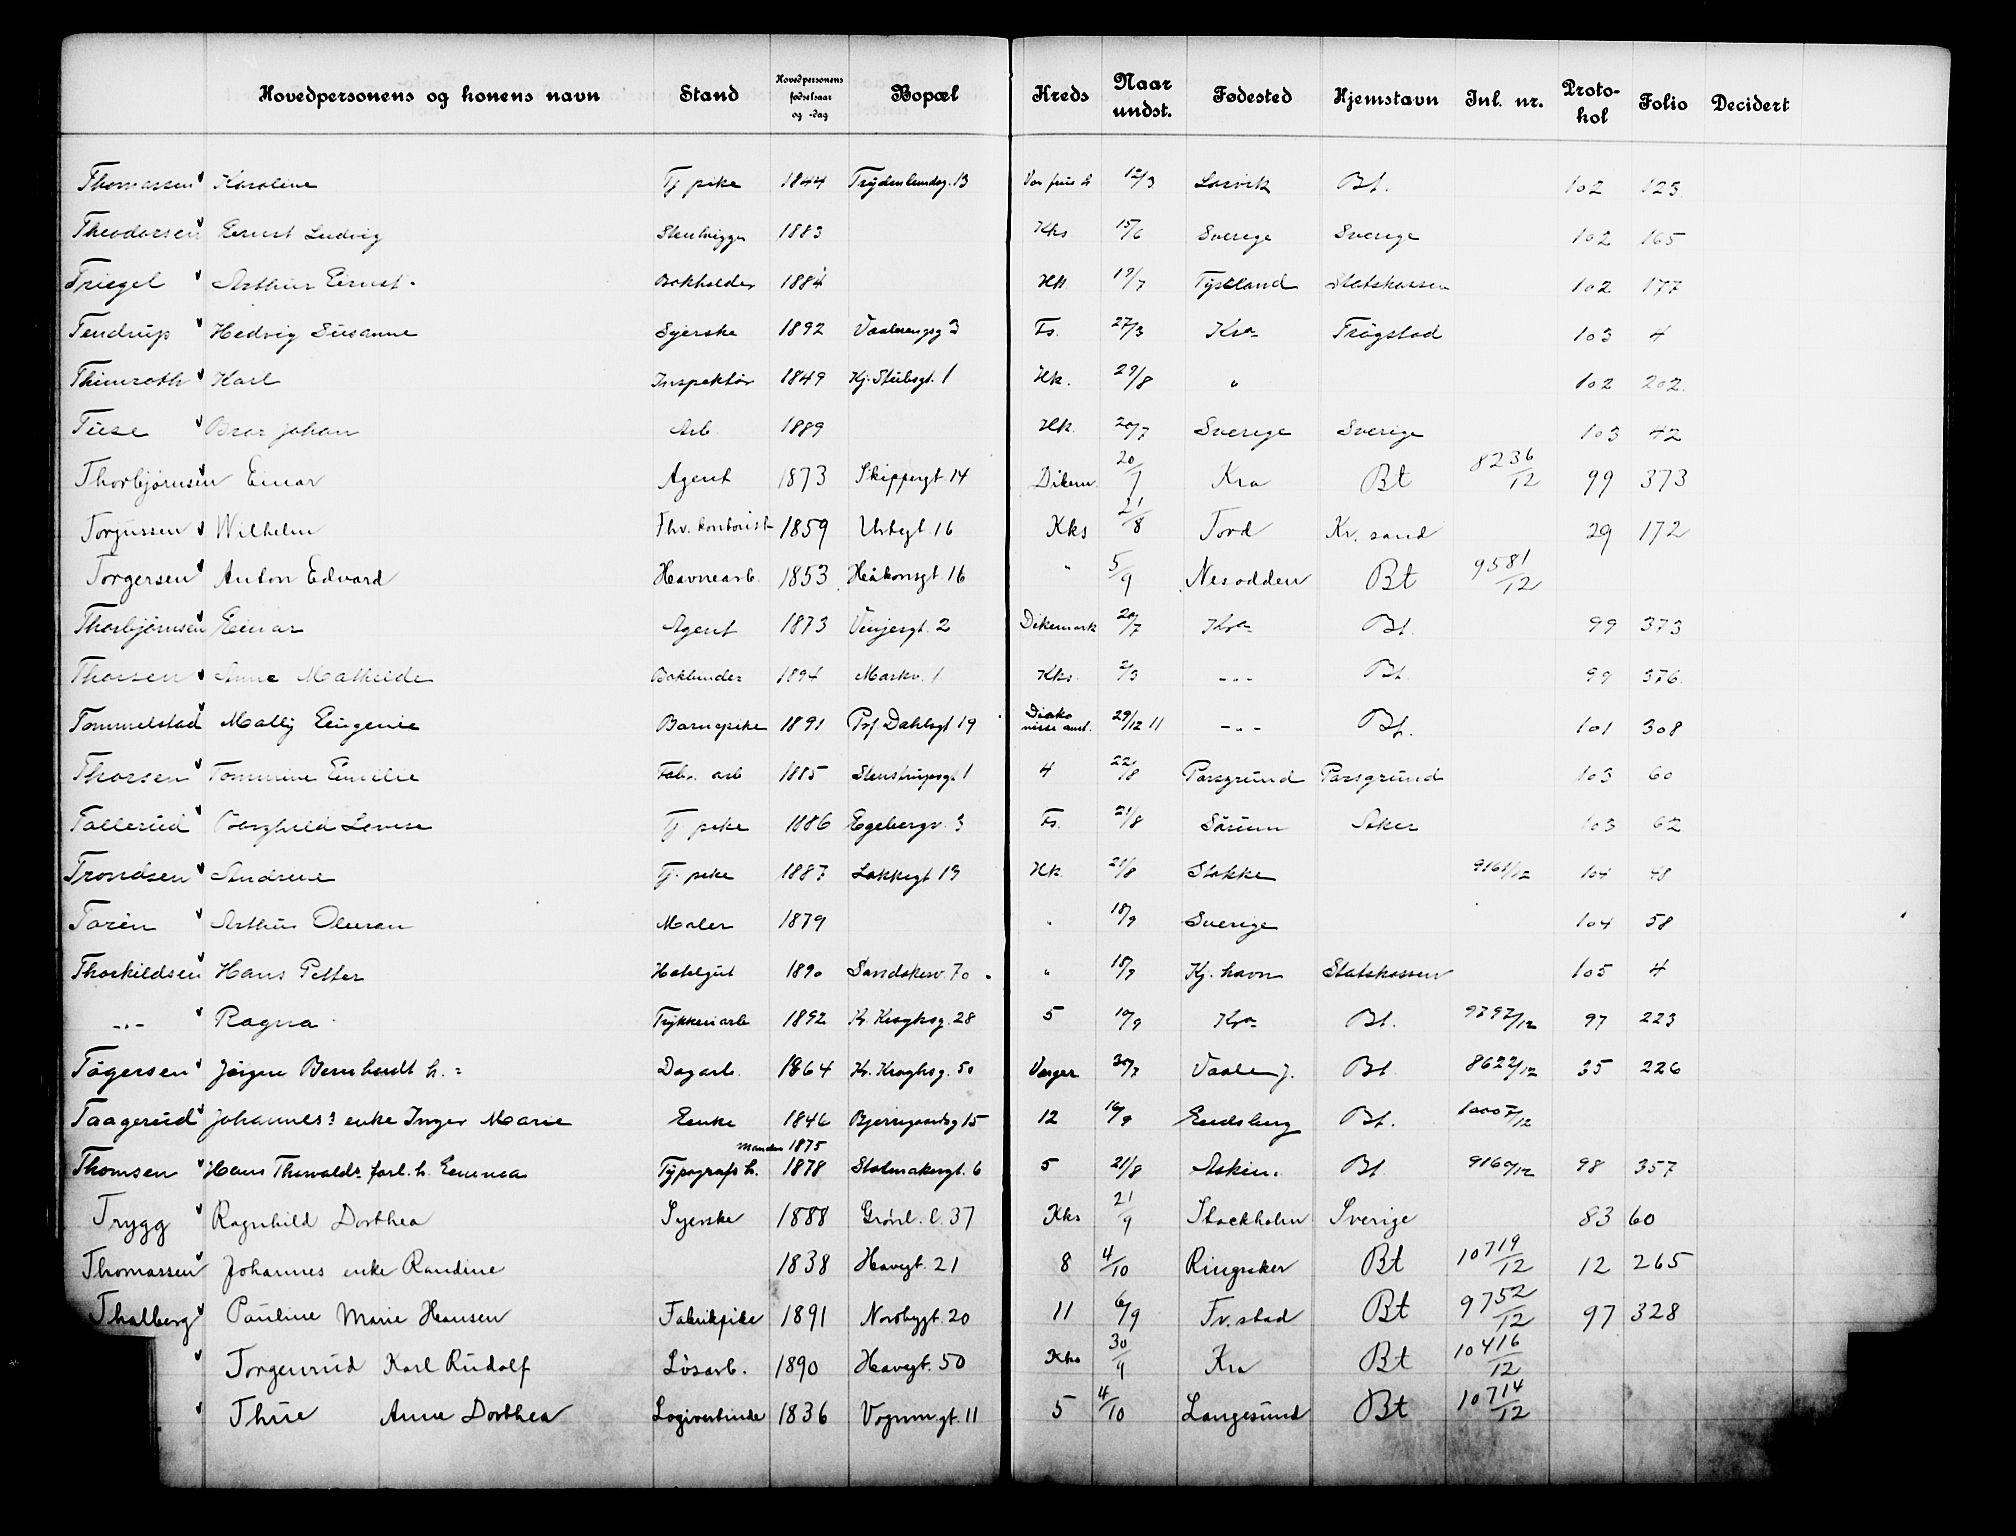 Hovedpersonens og konens navn Stand Hovedpersonens fødselsaar og -dag Bopæl Kreds Naar undst. Fødested Hjemstavn Inl. nr. Proto-kol Folio Decidert
Thomassen Karoline Tj pike 1844 13 Vor frue 12/3 Larvik Bt. 102 123
Theodorsen Ernst Ludvig Stenhugger 1883 Kks 15/6 Sverige Sverige 102 165
Triegel Arthur Ernst Bokholder 1884 Hk. 19/7 Tyskland Statskassen 102 177
Tendrup Hedvig Susanne Syerske 1892 Vaalerengg 3 Fs. 27/3 Kra Trøgstad 103 4
Thimroth Karl Inspektør 1849 Kj. Stubsgt. 1 Hk. 29/8 " 102 202
Tuse Bror Johan Arb. 1889 Hk. 20/7 Sverige Sverige 103 42
Thorbjørnsen Einar Agent 1873 Skippergt 14 Dikem. Kra Bt 8236/12 99 373
Torgussen Wilhelm Fhv. kontorist 1859 Urtegt 16 Kks 21/8 Kr. sand 29 172
Torgersen Anton Edvard Havnearb. 1853 Håkonsgt 16 " 5/9 Nesodden Bt 9581/12
Thorbjørnsen Einar Agent 1873 Vinjesgt. 2 Dikemark 20/7 Kra Bt. 99 373
Thorsen Anne Mathilde Bokbinder 1894 Markv. 1 Kks. 2/3 -"- Bt. 99 376
Tommelstad Mally Eugenie Barnepike 1891 Prf Dahlsgt 19 Diakonisse anst. 29/12 11 -"- Bt. 101 308
Thorsen Tommine Emilie Fabr. arb 1885 Stenstrupsgt 1 4 22/8 Porsgrund Porsgrund 103 60
Tollerud Borghild Lovise Tj pike 1886 Egebergv. 3 Fs. 21/8 Sørum Aker 103 62
Trondsen Andrine Tj. pike 1887 Lakkegt 19 Hk. 21/8 Stokke 9161/12 104 48
Torèn Arthur Maler 1879 " 18/9 Sverige 104 58
Thorkildsen Hans Petter Hotelgut 1890 Sandakerv. 70 " 18/9 Kj. havn Statskassen 105 4
-"- Ragna Trykkeriarb 1892 Kr. Kroghsg. 28 5 10/9 Kra Bt. 9797/12 97 223
Tøgersen Jørgen Bernhardt h. Dagarb. 1864 Kr. Kroghsg. 50 Varger Vaale Bt. 8622/12 35 226
Taagerud Johannes: enke Inger Marie Enke 1846 Bjerregaardsg 15 12 16/9 Eidsberg Bt. 10007/12
manden 1875
Thomsen Hans Thorvalds forl. h. Emma Typografs h. 1878 Stolmakergt. 6 5 21/8 Askim. Bt 9160/12 98 357
Trygg Ragnhild Dorthea Syerske 1888 Grønl. l. 37 Kks 21/9 Stockholm Sverige 83 60
Thomassen Johannes enke Randine 1838 Havegt. 21 8 4/10 Ringsaker Bt 10719/12 12 265
Thalberg Pauline Marie Hansen Fabrikpike 1891 Nordbygt. 20 11 6/9 Fr. stad Bt 9752/12 97 328
Torgerrud Karl Rudolf Løsarb. 1890 Havegt. 50 Kks 30/9 Kra Bt 10416/12
Thue Anne Dorthea Logivertinde 1836 Vognm.gt. 11 5 4/10 Langesund Bt 10714/12